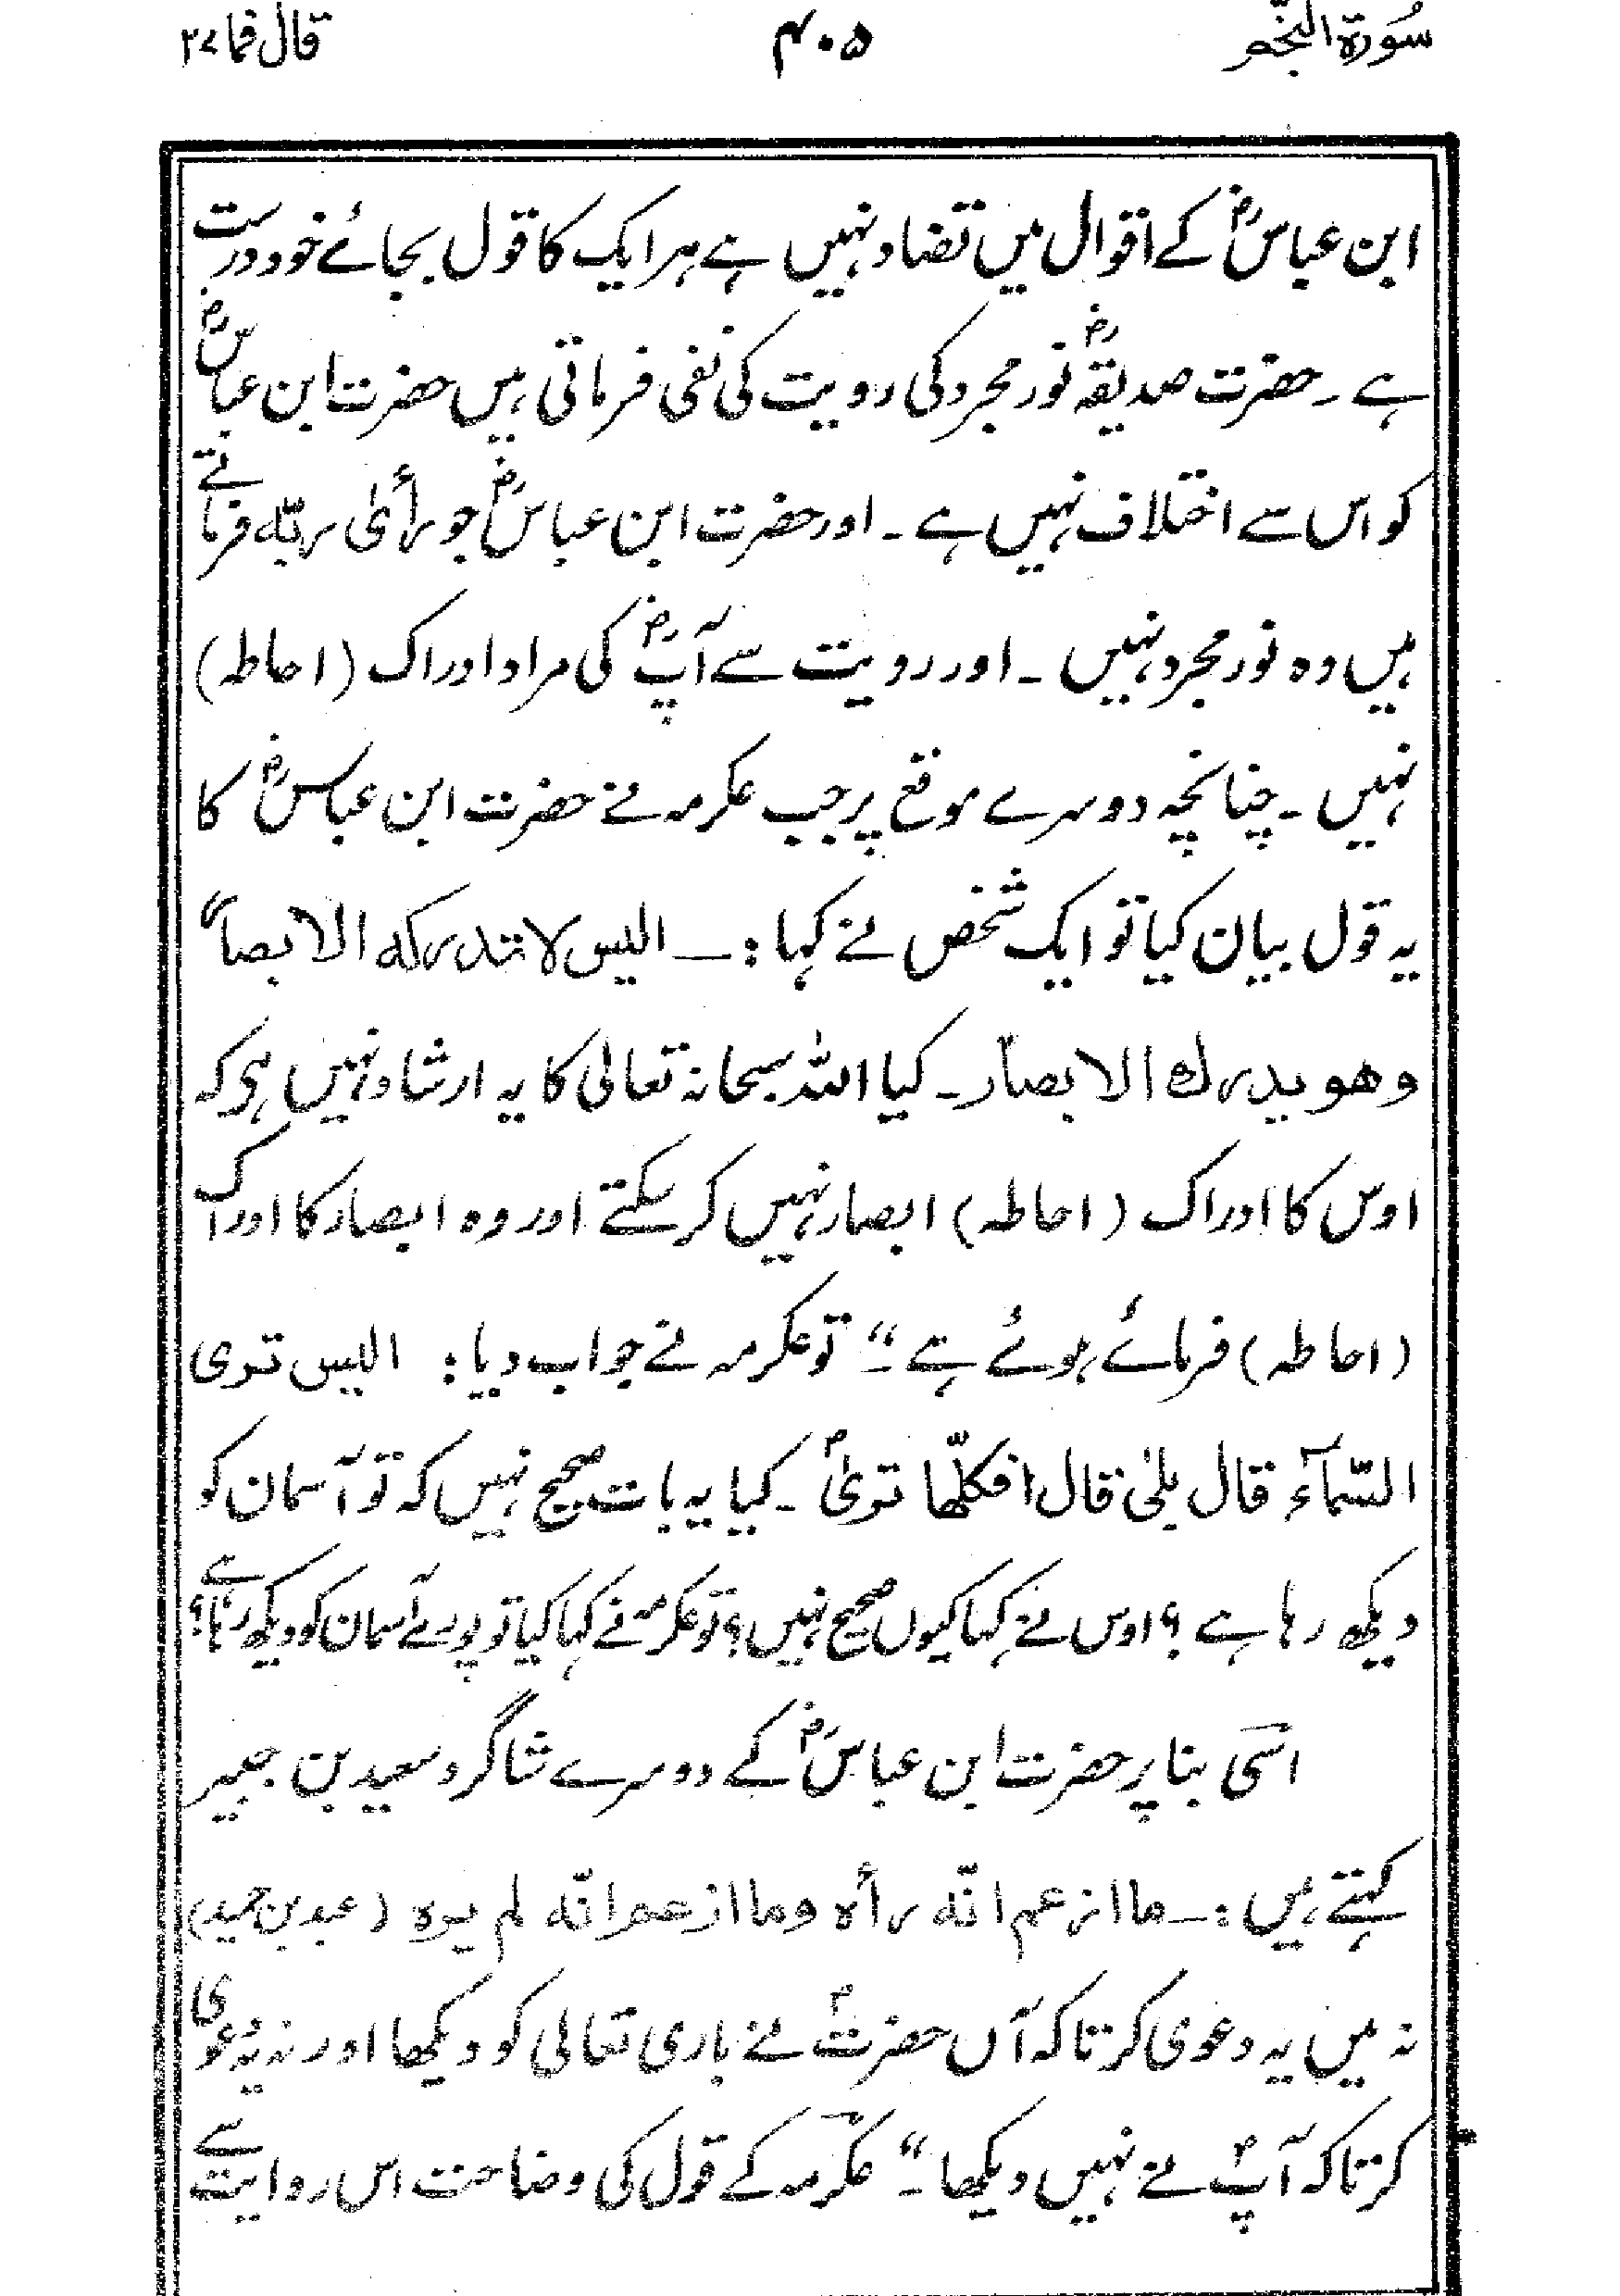 سُورة النّجم ۴۰۵ قال فما ۲۷
ابن عباسؓ کے اقوال میں تضاد نہیں ہے ہر ایک کا قول بجائے خود درست
ہے ۔ حضرت صدیقہؓ نور مجرد کی رویت کی نفی فرماتی ہیں حضرت ابن عباسؓ
کو اس سے اختلاف نہیں ہے ۔ اور حضرت ابن عباسؓ جو رأیٰ ربّہ فرماتے
ہیں وہ نور مجرد نہیں ۔ اور رویت سے آپؓ کی مراد ادراک (احاطہ)
نہیں ۔ چنانچہ دوسرے موقع پر جب عکرمہ نے حضرت ابن عباسؓ کا
یہ قول بیان کیا تو ایک شخص نے کہا :۔ الیس لا تدرکہ الابصار
وھو یدرك الابصار ۔ کیا اللہ سبحانہ تعالیٰ کا یہ ارشاد نہیں ہی کہ
اوس کا ادراک (احاطہ) ابصار نہیں کر سکتے اور وہ ابصار کا ادراک
(احاطہ) فرمائے ہوئے ہے ۔“ تو عکرمہ نے جواب دیا : الیس تری
السّمآء قال بلیٰ قال افکلّھا تریٰ ۔ کیا یہ بات صحیح نہیں کہ تو آسمان کو
دیکھ رہا ہے ؟ اوس نے کہا کیوں صحیح نہیں ؟ تو عکرمہ نے کہا کیا تو پورے آسمان کو دیکھ رہا ہے ؟
اسی بنا پر حضرت ابن عباسؓ کے دوسرے شاگرد سعید بن جبیر
کہتے ہیں :۔ ما ازعم انّہ رأہ وما ازعم انّہ لم یرہ (عبد بن حمید)
نہ میں یہ دعوی کرتا کہ آں حضرتؐ نے باری تعالی کو دیکھا اور نہ یہ دعوی
کرتا کہ آپؐ نے نہیں دیکھا ۔“ عکرمہ کے قول کی وضاحت اس روایت سے